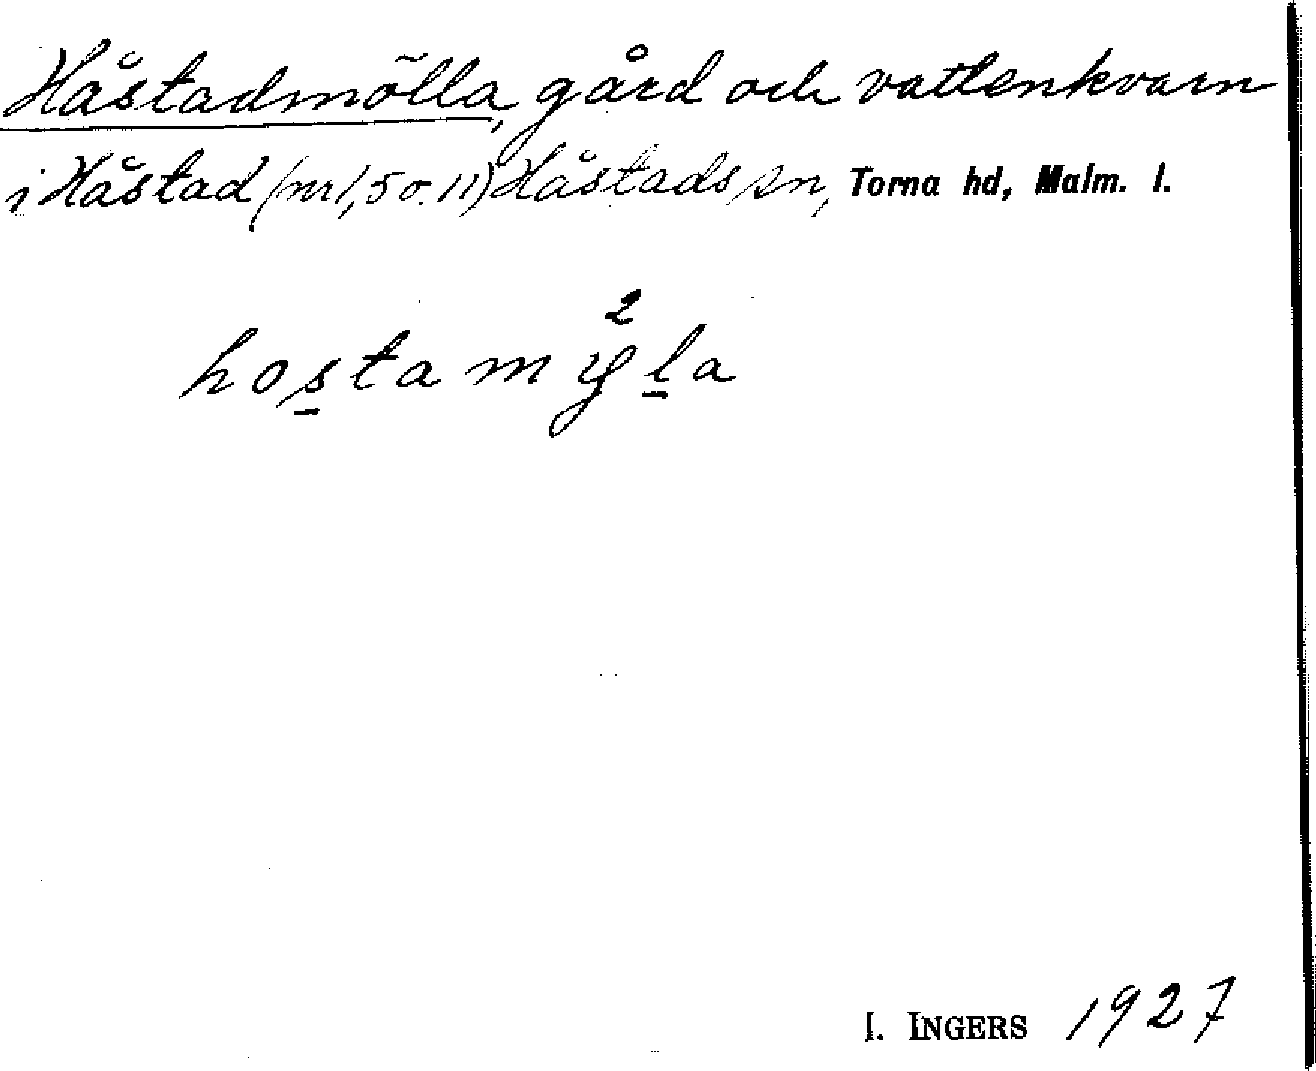 Håstadmölla, gård och vattenkvarn
i Håstad (nr 1, 5 o. 11) Håstads sn, Torna hd, Malm. l.
2
hostamyla
I. INGERS 1927